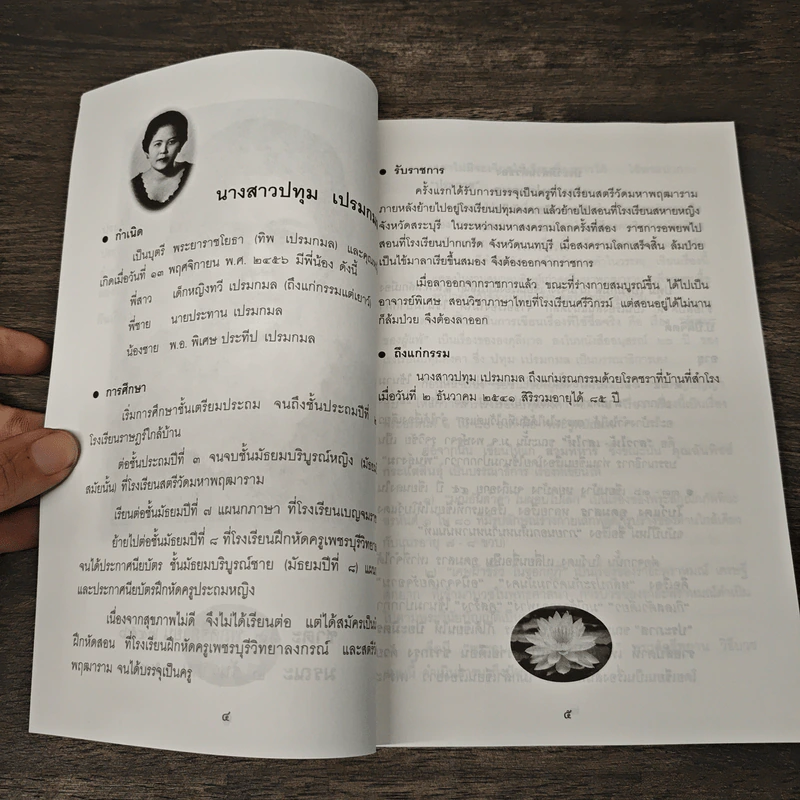 นางสาวปทุม เปรมกมล
● กำเนิด
เป็นบุตรี พระยาราชโยธา (ทิพ เปรมกมล) และคุณ
เกิดเมื่อวันที่ ๑๓ พฤศจิกายน พ.ศ. ๒๔๕๖ มีพี่น้อง ดังนี้
พี่สาว เด็กหญิงทวี เปรมกมล (ถึงแก่กรรมแต่เยาว์)
พี่ชาย นายประทาน เปรมกมล
น้องชาย พ.อ. พิเศษ ประทีป เปรมกมล
● การศึกษา
เริ่มการศึกษาชั้นเตรียมประถม จนถึงชั้นประถมปีที่
โรงเรียนราษฎร์ใกล้บ้าน
ต่อชั้นประถมปีที่ ๓ จนจบชั้นมัธยมบริบูรณ์หญิง (มัธยม
สมัยนั้น) ที่โรงเรียนสตรีวัดมหาพฤฒาราม
เรียนต่อชั้นมัธยมปีที่ ๗ แผนกภาษา ที่โรงเรียนเบญจมราช
ย้ายไปต่อชั้นมัธยมปีที่ ๘ ที่โรงเรียนฝึกหัดครูเพชรบุรีวิทยา
จนได้ประกาศนียบัตร ชั้นมัธยมบริบูรณ์ชาย (มัธยมปีที่ ๘) แผนก
และประกาศนียบัตรฝึกหัดครูประถมหญิง
เนื่องจากสุขภาพไม่ดี จึงไม่ได้เรียนต่อ แต่ได้สมัครเป็น
ฝึกหัดสอน ที่โรงเรียนฝึกหัดครูเพชรบุรีวิทยาลงกรณ์ และสตรี
พฤฒาราม จนได้บรรจุเป็นครู
๔
● รับราชการ
ครั้งแรกได้รับการบรรจุเป็นครูที่โรงเรียนสตรีวัดมหาพฤฒาราม
ภายหลังย้ายไปอยู่โรงเรียนปทุมคงคา แล้วย้ายไปสอนที่โรงเรียนสหายหญิง
จังหวัดสระบุรี ในระหว่างมหาสงครามโลกครั้งที่สอง ราชการอพยพไป
สอนที่โรงเรียนปากเกร็ด จังหวัดนนทบุรี เมื่อสงครามโลกเสร็จสิ้น ล้มป่วย
เป็นไข้มาลาเรียขึ้นสมอง จึงต้องออกจากราชการ
เมื่อลาออกจากราชการแล้ว ขณะที่ร่างกายสมบูรณ์ขึ้น ได้ไปเป็น
อาจารย์พิเศษ สอนวิชาภาษาไทยที่โรงเรียนศรีวิกรม์ แต่สอนอยู่ได้ไม่นาน
ก็ล้มป่วย จึงต้องลาออก
● ถึงแก่กรรม
นางสาวปทุม เปรมกมล ถึงแก่มรณกรรมด้วยโรคชราที่บ้านที่สำโรง
เมื่อวันที่ ๒ ธันวาคม ๒๕๔๑ สิริรวมอายุได้ ๘๕ ปี
๕